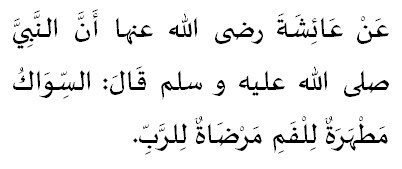 عَنْ عَائِشَةَ رضى الله عنها أَنَّ النَّبِيَّ
صلى الله عليه و سلم قَالَ: السِّوَاكُ
مَطْهَرَةٌ لِلْفَمِ مَرْضَاةٌ لِلرَّبِّ.